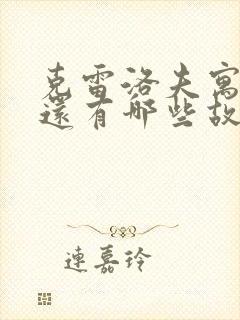 克雷洛夫寓
還有哪些故
連嘉玲